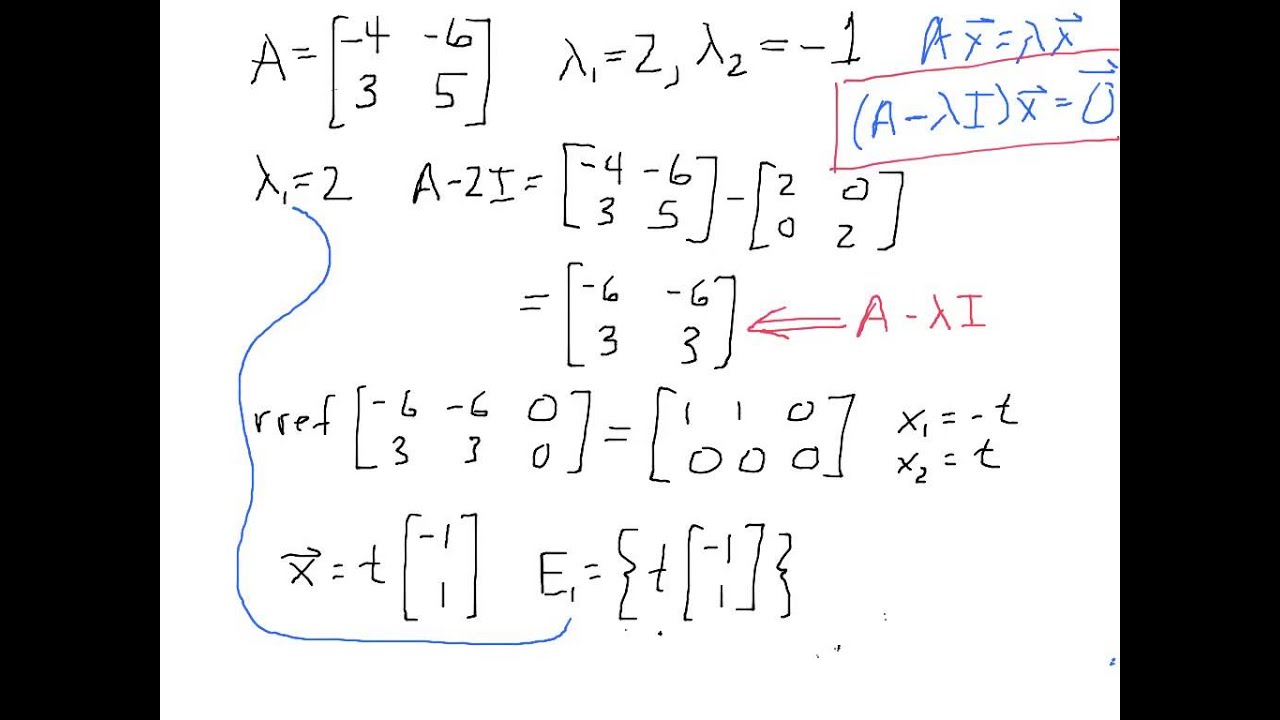 A = [-4 -6; 3 5] λ₁=2, λ₂=-1 Ax⃗=λx⃗
(A-λI)x⃗=0⃗
λ₁=2 A-2I=[-4 -6; 3 5]-[2 0; 0 2]
=[-6 -6; 3 3] ⇐ A-λI
rref [-6 -6 0; 3 3 0]=[1 1 0; 0 0 0] x₁=-t
x₂=t
x⃗=t[-1; 1] E₁={t[-1; 1]}